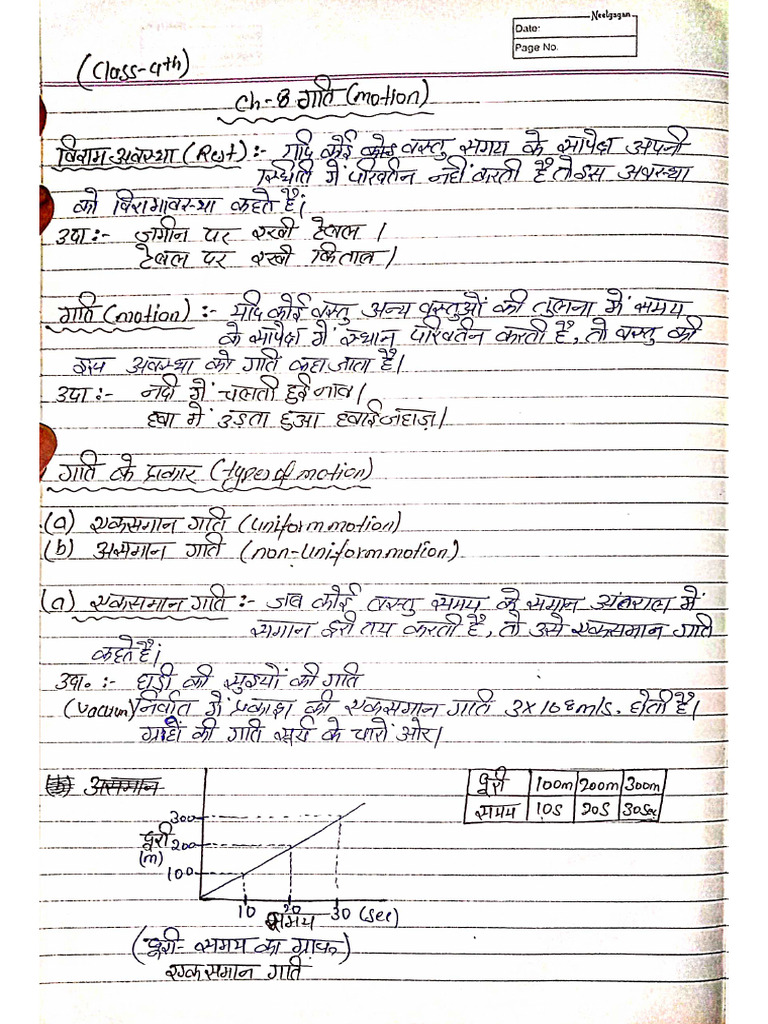 Neelgagan
Date:
Page No.
(Class-9th)
Ch-8 गति (motion)
विराम अवस्था (Rest) :- यदि कोई कोई वस्तु समय के सापेक्ष अपनी
स्थिति में परिवर्तन नहीं करती है तो इस अवस्था
को विरामावस्था कहते हैं।
उदा :- जमीन पर रखी टेबल।
टेबल पर रखी किताब।
गति (motion) :- यदि कोई वस्तु अन्य वस्तुओं की तुलना में समय
के सापेक्ष में स्थान परिवर्तन करती है, तो वस्तु की
इस अवस्था को गति कहा जाता है।
उदा :- नदी में चलती हुई नाव।
हवा में उड़ता हुआ हवाई जहाज़।
गति के प्रकार (types of motion)
(a) एकसमान गति (uniform motion)
(b) असमान गति (non-uniform motion)
(a) एकसमान गति :- जब कोई वस्तु समय के समान अंतराल में
समान दूरी तय करती है, तो उसे एकसमान गति
कहते है।
उदा. :- घड़ी की सुइयों की गति
(Vacuum) निर्वात में प्रकाश की एकसमान गति 3×108m/s. होती है।
ग्रहों की गति सूर्य के चारों ओर।
(b) असमान
दूरी 100m 200m 300m
समय 10S 20S 30Sec
300
दूरी 200
(m)
100
10 20 30 (Sec)
समय
(दूरी- समय का ग्राफ)
एकसमान गति